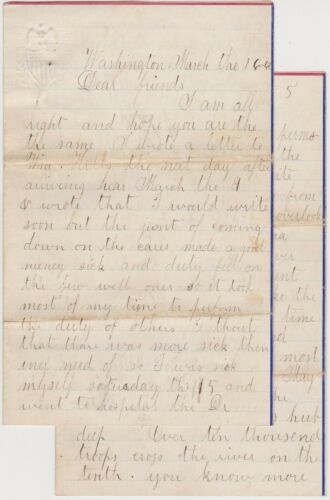 Washington March the 16
Dear friends
I am all
right and hope you are the
the same I wrote a letter to
Wm. Mills the next day after
arriving hear March the 9
& wrote that I would write
soon but the jont of coming
down on the cares made a good
meney sick and duty fell on
the few well ones so it took
most of my time to perform
the duty of others I thout
that thare was more sick then
iny need of so I was sick
myself saturaday the 15 and
went to hospital the Dr
5
perms
the
ite
from
overlook
ea
ver
ent
so the
time
ed
most
May
he
s hub
deep Over ten thousend
troops cross the river on the
tenth. you know more